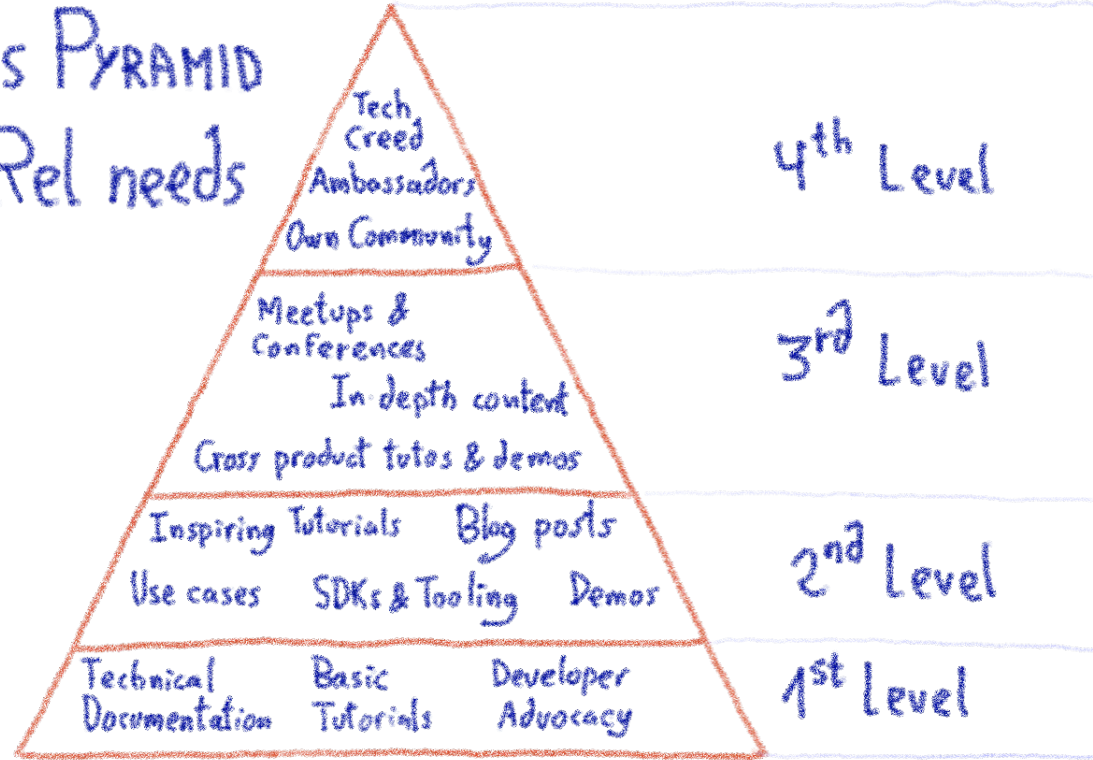 s PYRAMID
Rel needs
Tech
Creed
Ambassadors
Own Community
4th Level
Meetups &
Conferences
In depth content
Cross product tutos & demos
3rd Level
Inspiring Tutorials Blog posts
Use cases SDKs & Tooling Demos
2nd Level
Technical Basic Developer
Documentation Tutorials Advocacy
1st Level